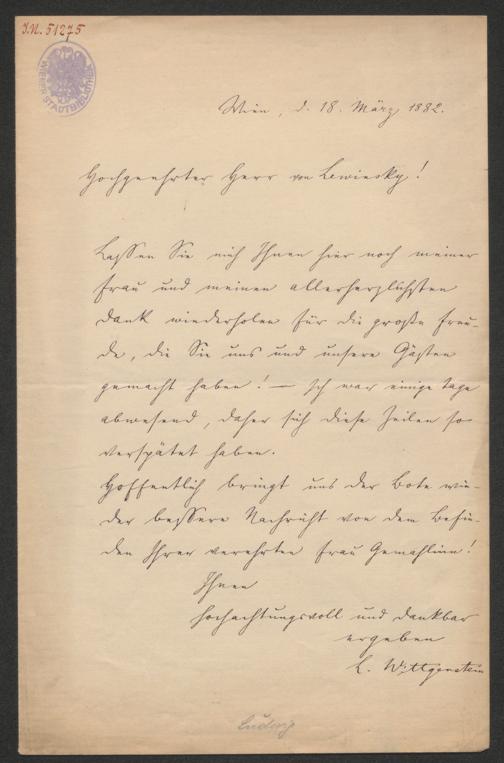 J.N. 51275
WIENER STADTBIBLIOTHEK
Wien, d. 18. März 1882.
Hochgeehrter Herr von Lewinsky!
Lassen Sie mich Ihnen hier noch meiner
Frau und meinen allerherzlichsten
Dank wiederholen für die große Freu-
de, die Sie uns und unseren Gästen
gemacht haben! — Ich war einige Tage
abwesend, daher sich diese Zeilen so
verspätet haben.
Hoffentlich bringt uns der Bote wie-
der bessere Nachricht von dem Befin-
den Ihrer verehrten Frau Gemahlinn!
Ihnen
hochachtungsvoll und dankbar
ergeben
L. Wittgenstein
Ludwig